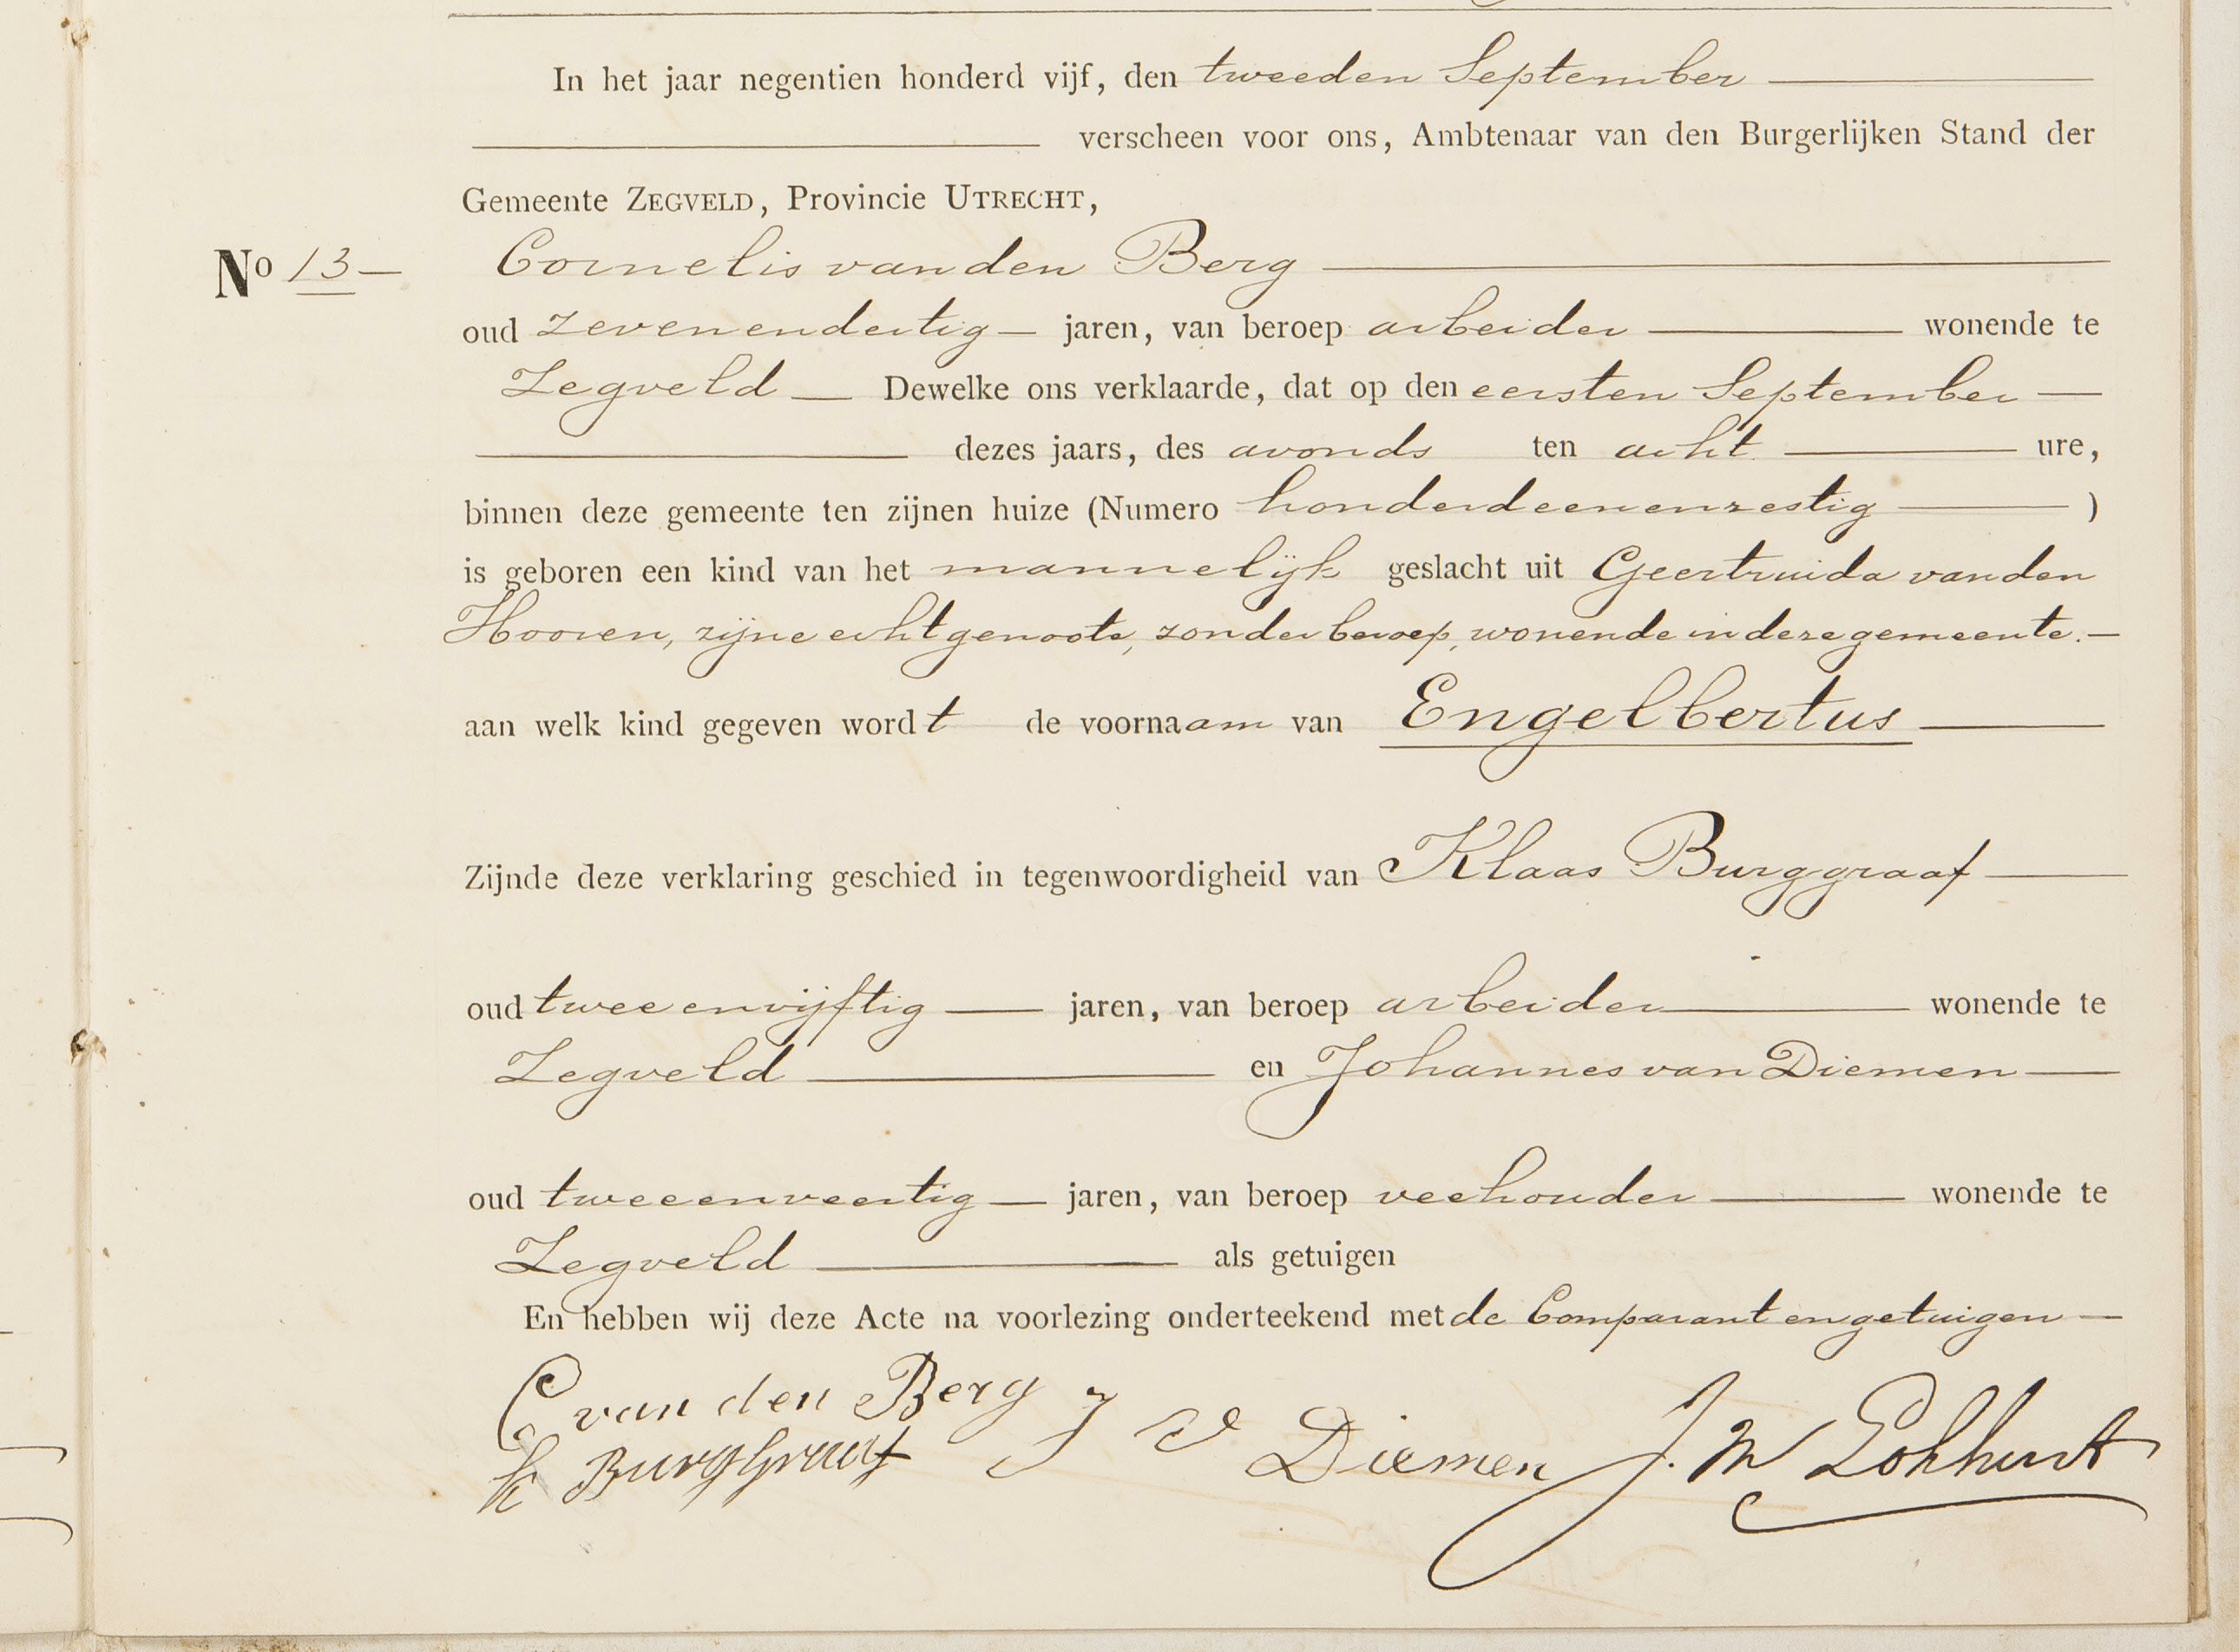 In het jaar negentien honderd vijf, den tweeden September
verscheen voor ons, Ambtenaar van den Burgerlijken Stand der
Gemeente ZEGVELD, Provincie UTRECHT,
No 13 Cornelis van den Berg
oud zevenendertig jaren, van beroep arbeider wonende te
Zegveld Dewelke ons verklaarde, dat op den eersten September
dezes jaars, des avonds ten acht ure,
binnen deze gemeente ten zijnen huize (Numero honderdeenenzestig )
is geboren een kind van het mannelijk geslacht uit Geertruida van den
Hooven, zijne echtgenoote, zonder beroep, wonende in deze gemeente.
aan welk kind gegeven wordt de voornaam van Engelbertus
Zijnde deze verklaring geschied in tegenwoordigheid van Klaas Burggraaf
oud tweeenvijftig jaren, van beroep arbeider wonende te
Zegveld en Johannes van Diemen
oud tweeenveertig jaren, van beroep veehouder wonende te
Zegveld als getuigen
En hebben wij deze Acte na voorlezing onderteekend met de Comparant en getuigen
C van den Berg J V Diemen J. W
K BurgGraaf